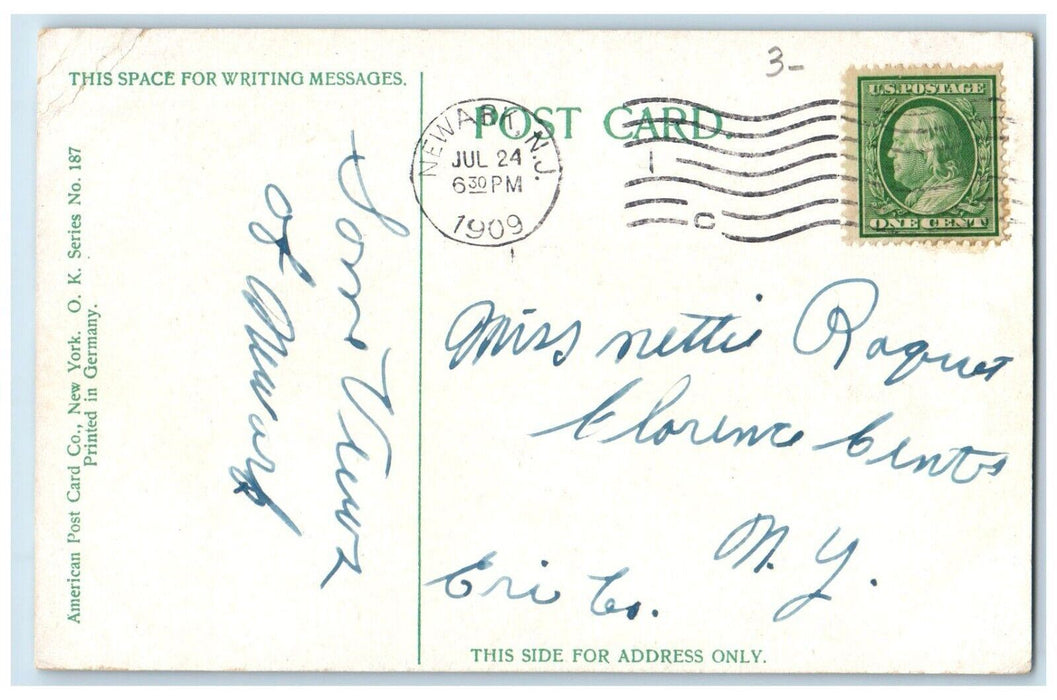 THIS SPACE FOR WRITING MESSAGES.
American Post Card Co., New York. O. K. Series No. 187
Printed in Germany.
of Newark
POST CARD.
NEWARK, N.J.
JUL 24
6 30 PM
1909
1
C
3-
U.S. POSTAGE
ONE CENT
Miss Nettie Roquet
Clarence Cents
N. Y.
Erie Co.
THIS SIDE FOR ADDRESS ONLY.